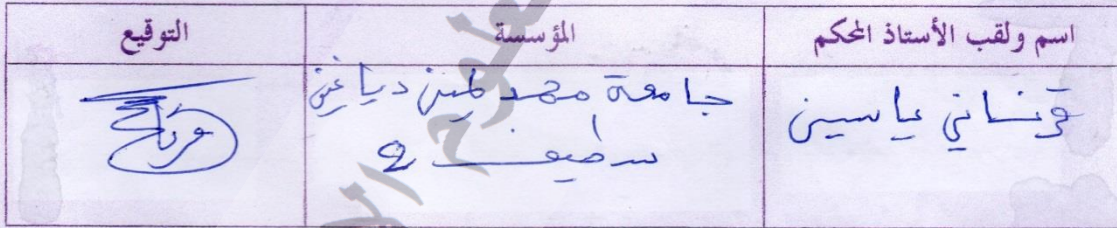 اسم ولقب الأستاذ المحكم
المؤسسة
التوقيع
ياسين
جامعة محمد لمين دباغين
سطيف 2